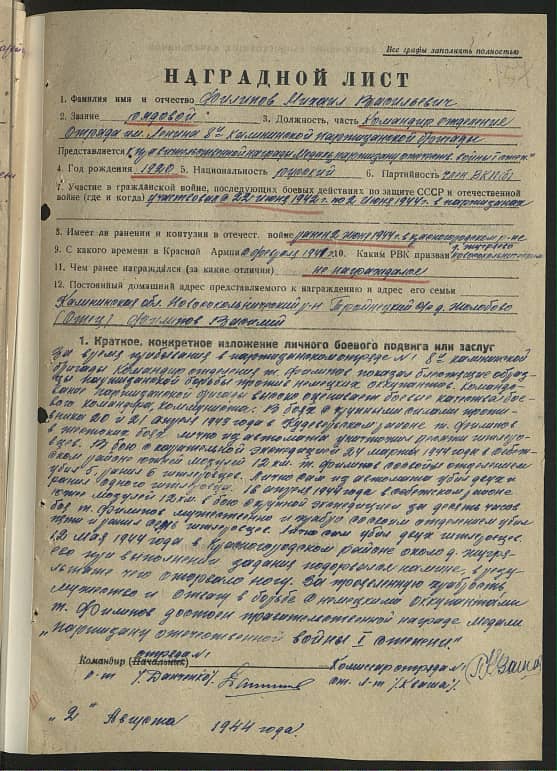 Все графы заполнять полностью
НАГРАДНОЙ ЛИСТ
1. Фамилия имя и отчество Филипов Михаил Васильевич
2. Звание рядовой 3. Должность, часть Командир отделения
отряда им. Ленина 8й Калининской партизанской бригады
Представляется к правительственной награде Медаль партизану отечеств. войны I степ."
4. Год рождения 1920 5. Национальность русский 6. Партийность чл. ВКП(б)
7. Участие в гражданской войне, последующих боевых действиях по защите СССР и отечественной
войне (где и когда) участвовал с 22 июня 1942 г. по 2 июня 1944 г. в партизанах
8. Имеет ли ранения и контузии в отечест. войне ранен 2 июня 1944 г. в Красногородском р-не
9. С какого времени в Красной Армии 10. Каким РВК призван
11. Чем ранее награждался (за какие отличия) не награждался
12. Постоянный домашний адрес представляемого к награждению и адрес его семьи
Калининская обл. Новосокольнический р-н Троицкий с/с д. Жолобово
(Отец) Филипов Василий
1. Краткое, конкретное изложение личного боевого подвига или заслуг
За время пребывания в партизанском отряде №1 8й калининской
бригады командир отделения т. Филипов показал блестящие образ-
цы партизанской борьбы против немецких оккупантов. Командо-
вание партизанской бригады высоко оценивает боевые качества бое-
вого командира, коммуниста. В боях с крупными силами против-
ника 20 и 21 августа 1943 года в районе т. Филипов
в боях лично из автомата уничтожил десять гитлеро-
вцев. В бою с карательной экспедицией 24 марта 1944 года в
районе 12 км. т. Филипов со своим отделением
убил 5, ранил 6 гитлеровцев. Лично сам из автомата убил двух и
ранил одного гитлеровца. 16 апреля 1944 года в советском районе
12 км. в бою с крупной экспедицией за десять часов
боя т. Филипов мужественно и храбро со своим отделением убил
и ранил семь гитлеровцев. Лично сам убил двух гитлеровцев.
12 мая 1944 года в Красногородском районе около д.
при выполнении задания подорвался на мине, в резу-
льтате чего оторвало ногу. За проявленную храбрость,
мужество и отвагу в борьбе с немецкими оккупантами
т. Филипов достоин правительственной награды медали
"Партизану отечественной войны I степени."
Командир (Начальник) отряда №1 Комиссар отряда №1
с-т ст. л-т
"2" Августа 1944 года.